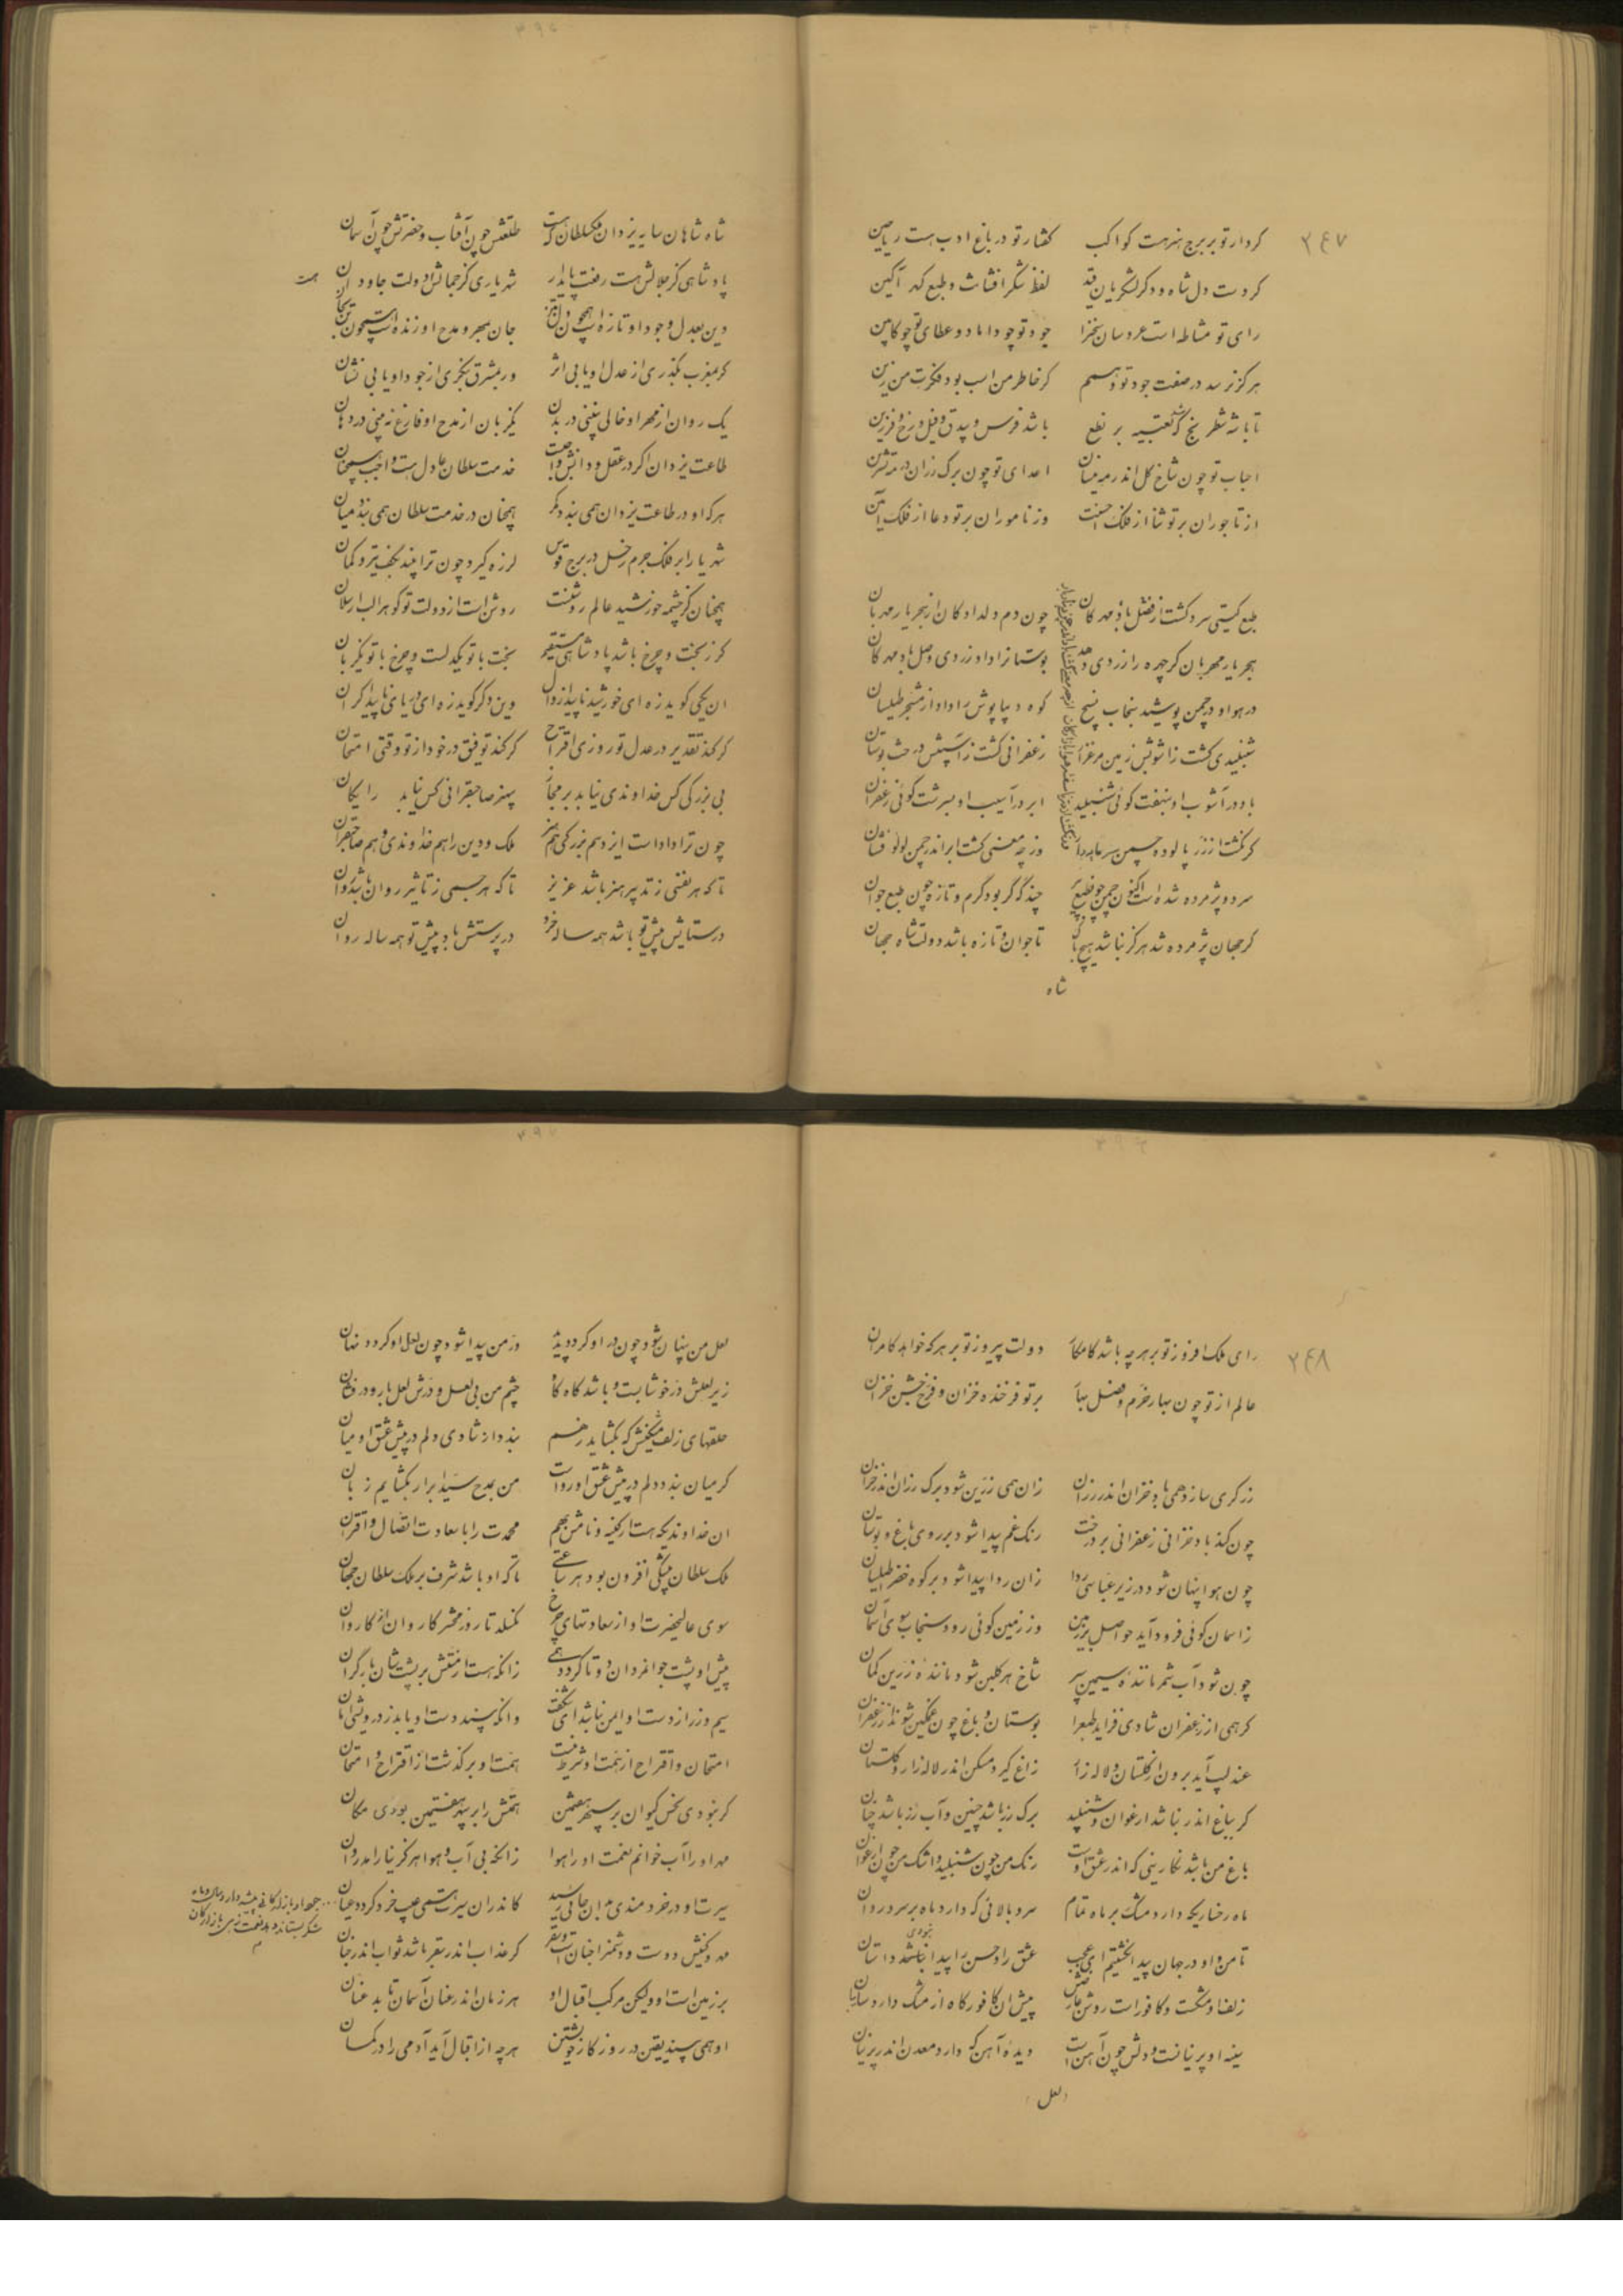 ۲۴۷
کردار تو بر برج هنر هست کواکب گفتار تو در باغ ادب هست ریاحین
کر دست دل شاه و دکر لشکریان قد لفظ شکر افشانت و طبع گهر آگین
رای تو مشاطه است عروسان سخن را جود تو چو داماد و عطای تو چو کابین
هرگز نرسد در صفت جود تو وهمم گر خاطر من اسب بود فکرت من زین
تا باشد شطرنج تعبیه بر نطع باشد فرس و بیدق و فیل و رخ و فرزین
احباب تو چون شاخ گل اندر مه نیسان اعدای تو چون برگ رزان در مه تشرین
از تاجوران بر تو ثنا از فلک احسنت وز ناموران بر تو دعا از فلک آمین
طبع گیتی سرد گشت از فصل باد مهرگان چون دم دلدادگان از هجر یار مهربان
هجر یار مهربان گر چهره را زردی دهد بوستانرا داد زردی وصل باد مهرکان
در هوا و در چمن پوشید سنجاب نسیج کوه دیباپوش را داد از مشجر طیلسان
شنبلیدی گشت زاشوبش زمین مرغزار زعفرانی گشت زآسیبش درخت بوستان
باد در آشوب او بنهفت گوئی شنبلید ابر در آسیب او بسرشت گوئی زعفران
کر نگشت از زر پالوده چمن سرمایه‌دار وز چه معنی گشت ابر اندر چمن لولو فشان
سرد و پژمرده شده است اکنون چمن چون طبع پیر چند گه گر بود گرم و تازه چون طبع جوان
گر جهان پژمرده شد هرگز نباشد هیچ باک تا جوان و تازه باشد دولت شاه جهان
شاه
شاه شاهان سایه یزدان ملک سلطان که هست طلعتش چون آفتاب و حضرتش چون آسمان
پادشاهی کز جلالش هست رفعت پایدار شهریاری کز جمالش دولت جاودان
هست
دین بعدل و جود او تازه است همچون تن بجان جان بمهر و مدح او زنده است همچون
گر بمغرب بگذری از عدل او یابی اثر ور بمشرق بنگری از جود او یابی نشان
یک روان از مهر او خالی نبینی در بدن یک زبان از مدح او فارغ نه بینی در دهان
طاعت یزدان اگر در عقل و دانش واجبست خدمت سلطان عادل هست واجب همچنان
هر که او در طاعت یزدان همی بندد کمر همچنان در خدمت سلطان همی بندد میان
شهریارا بر فلک جرم زحل در برج قوس لرزه گیرد چون ترا بیند بکف تیر و کمان
همچنان کز چشمه خورشید عالم روشنست روشن است از دولت تو گوهر الب ارسلان
گر ز بخت و چرخ باشد پادشاهی مستقیم بخت با تو یکدلست و چرخ با تو یکزبان
ان یکی گوید زه ای خورشید ناپیدا زوال وین دگر گوید زه ای دریای ناپیدا کران
گر کند تقدیر در عدل تو روزی اقتراح گر کند توفیق در خود از تو وقتی امتحان
بی بزرگی کس خداوندی نیابد بر مجاز بی هنر صاحبقرانی کس نیابد رایگان
چون ترا داد است ایزد هم بزرگی هم هنر ملک و دین را هم خداوندی و هم صاحبقران
تا که هر نفسی ز تدبیر هنر باشد عزیز تا که هر جسمی ز تاثیر روان باشد روان
در ستایش پیش تو باشد همه ساله خرد در پرستش باد پیش تو همه ساله روان
۲۴۸
رای ملک افروز تو بر هر چه باشد کامکار دولت پیروز تو بر هر که خواهد کامران
عالم از تو چون بهار خرم و فصل بهار بر تو فرخنده خزان و فرخ جشن خزان
زرگری سازد همی باد خزان اندر رزان زان همی زرین شود برگ رزان اندر خزان
چون کند باد خزانی زعفرانی بر درخت رنگ غم پیدا شود بر روی باغ و بوستان
چون هوا پنهان شود در زیر عباسی ردا زان ردا پیدا شود بر کوه خضر طیلسان
زاسمان گوئی فرود آید حواصل بر زمین وز زمین گوئی رود سنجاب سوی آسمان
چون شود آب شمر مانندهٔ سیمین سپر شاخ هر گلبن شود مانندهٔ زرین کمان
گر همی از زعفران شادی فزاید طبع را بوستان و باغ چون غمگین شوند از زعفران
عندلیب آید برون از گلستان و لاله زار زاغ گیرد مسکن اندر لاله‌زار و گلستان
گر بباغ اندر نباشد ارغوان و شنبلید برگ رز باشد چنین و آب رز باشد چنان
باغ من باشد نگارینی که اندر عشق اوست رنگ من چون شنبلید و اشک من چون ارغوان
ماه رخساریکه دارد مشک بر ماه تمام سرو بالائی که دارد ماه بر سرو روان
تا من و او در جهان پیدا نگشتیم ای عجب عشق را و حسن را پیدا نباشد داستان
نبودی
زلفا و مشکست و کافور است روشن عارضش پیش ان کافور کاه از مشک دارد سایبان
سینه او پرنیانست و دلش چون آهن است دیدهٔ آهن که دارد معدن اندر پرنیان
لعل
لعل من پنهان شود چون در او گردد پدید در من پیدا شود چون لعل او گردد نهان
زیر لعلش در خوشابست و باشد گاه گاه چشم من بی لعل و درش لعل بار و در فشان
حلقهای زلف مشکینش که بگشاید ز هم بندد از شادی دلم در پیش عشق او میان
گر میان بندد دلم در پیش عشق او رواست من بمدح سید ابرار بگشایم زبان
ان خداوندیکه هست از کنیه و نامش بهم محمدت را با سعادت اتصال و اقتران
ملک سلطان بیشکی افزون بود هر ساعتی تا که او باشد شرف بر ملک سلطان جهان
سوی عالیحضرت او از سعادتهای چرخ نگسلد تا روز محشر کاروان از کاروان
پیش او پشت جوانمردان دوتا گردد همی زانکه هست از منتش بر پشت ایشان بار گران
سیم و زر از دست او ایمن نباشد ای شگفت وانکه بیند دست او یابد ز درویشی امان
امتحان و اقتراح از همت او شرط نیست همت او بر گذشت از اقتراح و امتحان
گر نبودی نحس کیوان بر سپهر هفتمین همتش را بر سپهر هفتمین بودی مکان
مهر او را آب خوانم نعمت او را هوا زانکه بی آب و هوا هرگز نیارامد روان
سیرت او در خردمندی بدان جائی رسید کاندران سیرت همی عیب خرد گردد عیان
مهر و کینش دوست و دشمن را جنانست و سقر گر عذاب اندر سقر باشد ثواب اندر جنان
بر زمین است او ولیکن مرکب اقبال او هر زمان اندر عنان آسمان تابد عنان
او همی بیند یقین در روزگار خویشتن هر چه از اقبال آید آدمی را در گمان